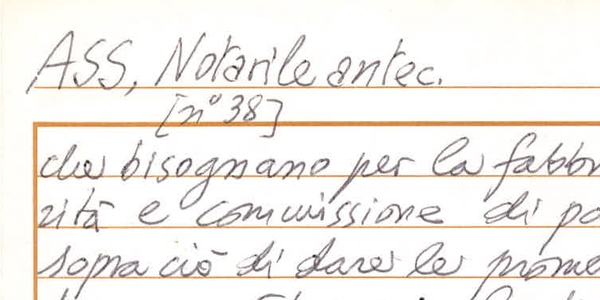 ASS, Notarile antec.
[n° 38]
che bisognano per la fabbr
rità e commissione di po
sopra ciò di dare le prome